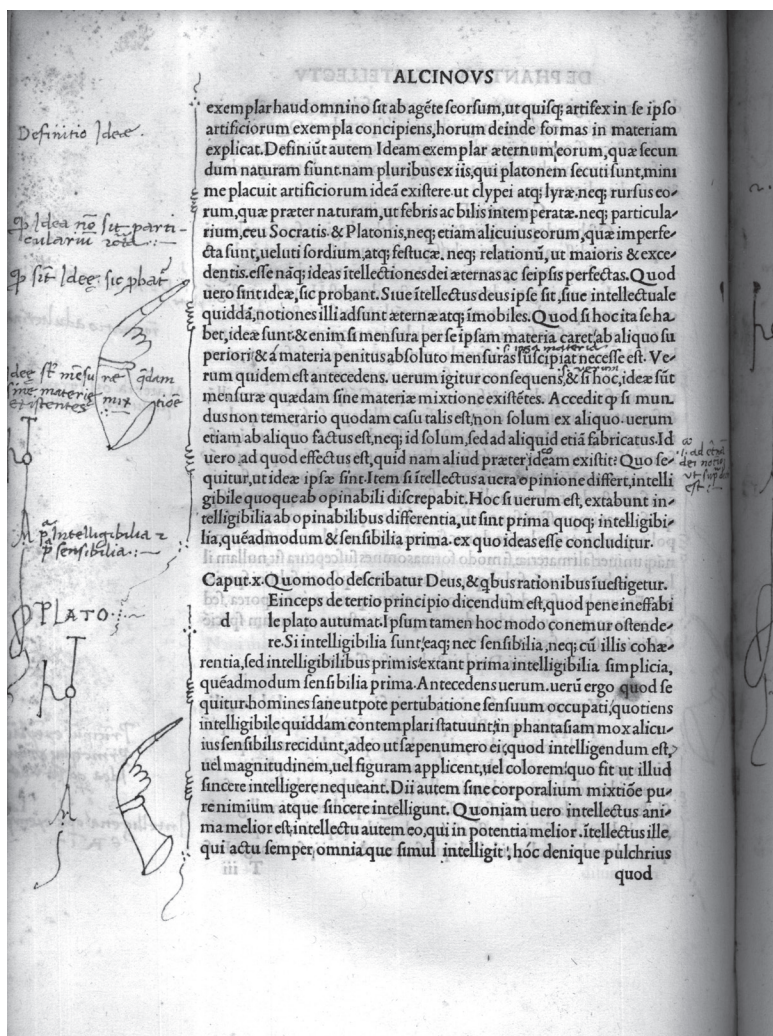 ALCINOVS
exemplar haud omnino sit ab agēte seorsum, ut quisq; artifex in se ipso
artificiorum exempla concipiens, horum deinde formas in materiam
explicat. Definiūt autem Ideam exemplar æternum, eorum, quæ secun
dum naturam fiunt. nam pluribus ex iis, qui platonem secuti sunt, mini
me placuit artificiorum ideā existere. ut clypei atq; lyræ. neq; rursus eo-
rum, quæ præter naturam, ut febris ac bilis intemperatæ. neq; particula-
rium, ceu Socratis & Platonis, neq; etiam alicuius eorum, quæ imperfe-
cta sunt, ueluti sordium, atq; festucæ. neq; relationū, ut maioris & exce-
dentis. esse nāq; ideas ītellectiones dei æternas ac seipsis perfectas. Quod
uero sint ideæ, sic probant. Siue ītellectus deus ipse sit, siue intellectuale
quiddā, notiones illi adsunt æternæ atq; īmobiles. Quod si hoc ita se ha
bet, ideæ sunt. & enim si mensura per se ipsam materia caret, ab aliquo su
periori & á materia penitus absoluto mensuras suscipiat necesse est. Ve-
rum quidem est antecedens. uerum igitur consequens, & si hoc, ideæ sūt
mensuræ quædam sine materiæ mixtione existētes. Accedit ꝙ si mun
dus non temerario quodam casu talis est, non solum ex aliquo. uerum
etiam ab aliquo factus est, neq; id solum, sed ad aliquid etiā fabricatus. Id
uero, ad quod effectus est, quid nam aliud præter ideam existit? Quo se-
quitur, ut ideæ ipsæ sint. Item si ītellectus a uera opinione differt, intelli
gibile quoque ab opinabili discrepabit. Hoc si uerum est, extabunt in-
telligibilia ab opinabilibus differentia, ut sint prima quoq; intelligibi-
lia, quēadmodum & sensibilia prima. ex quo ideas esse concluditur.
Caput.x. Quomodo describatur Deus, & qbus rationibus īuestigetur.
d Einceps de tertio principio dicendum est, quod pene ineffabi
le plato autumat. Ipsum tamen hoc modo conemur ostende-
re. Si intelligibilia sunt, eaq; nec sensibilia, neq; cū illis cohæ-
rentia, sed intelligibilibus primis extant prima intelligibilia simplicia,
quēadmodum sensibilia prima. Antecedens uerum. uerū ergo quod se
quitur. homines sane utpote pertubatione sensuum occupati, quotiens
intelligibile quiddam contemplari statuunt, in phantasiam mox alicu-
ius sensibilis recidunt, adeo ut sæpenumero ei, quod intelligendum est,
uel magnitudinem, uel figuram applicent, uel colorem. quo fit ut illud
sincere intelligere nequeant. Dii autem sine corporalium mixtiōe pu-
re nimium atque sincere intelligunt. Quoniam uero intellectus ani-
ma melior est, intellectu autem eo, qui in potentia melior. ītellectus ille
qui actu semper, omnia que simul intelligit, hóc denique pulchrius
quod
Definitio Ideæ.
ꝙ Idea nō sit parti-
cularium
ꝙ sīt Ideę: sic ꝓbat
Ideę st̄ mēsu re q̄dam
sine materię mix tiōe
existentes
si ipsa materia
pᵃ Intelligibilia ⁊
pᵃ sensibilia:
PLATO